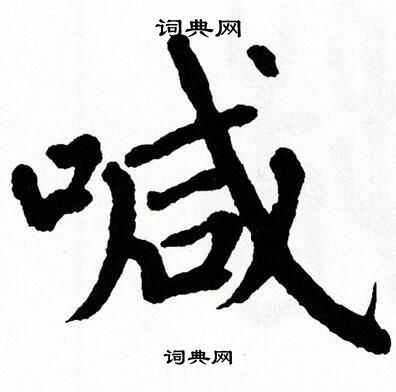 词典网
喊
词典网